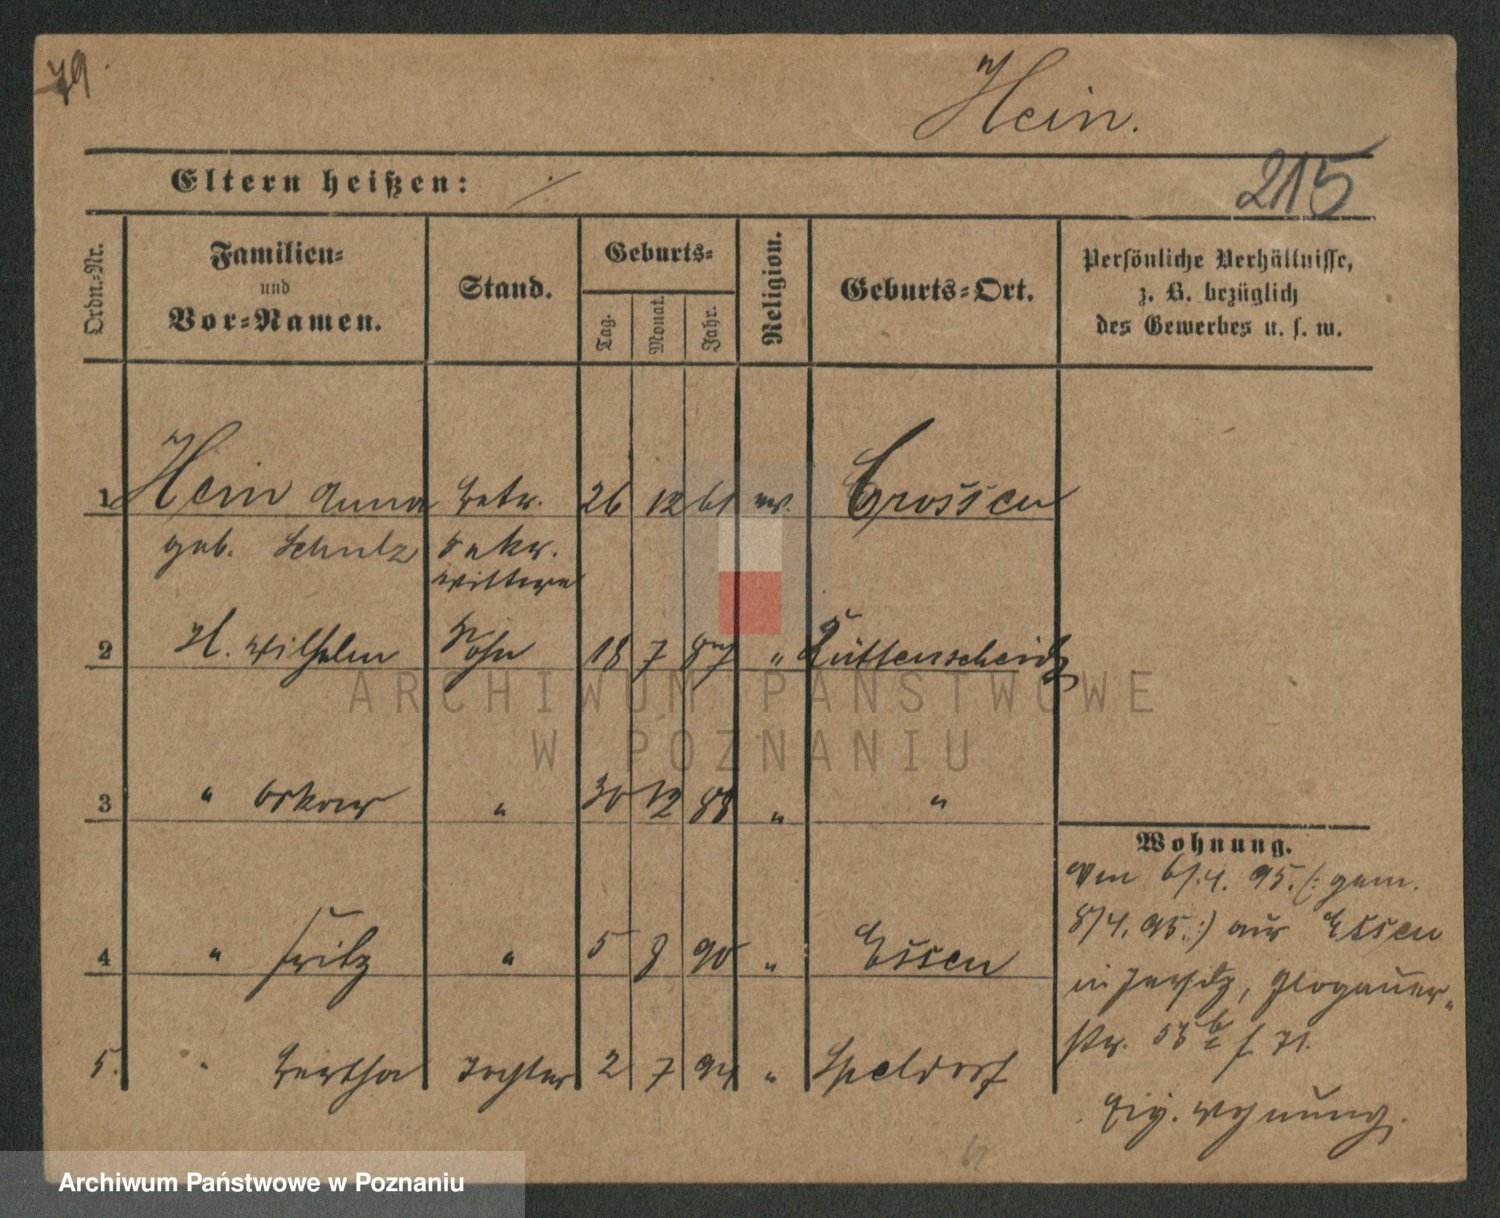 79.
Hein.
Eltern heißen: ./.
215
Ordn.-Nr.
Familien-
und
Vor-Namen.
Stand.
Geburts-
Tag.
Monat.
Jahr.
Religion.
Geburts-Ort.
Persönliche Verhältnisse,
z. B. bezüglich
des Gewerbes u. s. w.
1 Hein Anna 26 12 61 ev. Crossen
geb. Schulz
wittwe
2 H. Wilhelm Sohn 18 7 87 " Rüttenscheid
3 " Oskar " 30 12 88 " "
4 " Fritz " 5 8 90 " Essen
5. " Bertha Tochter 2 7 94 " Speldorf
Wohnung.
Vom 6/.4. 95. (: gem.
8/4. 95. :) aus Essen
in Jersitz, Glogauer-
str. 53 b
Eig. Wohnung.
ARCHIWUM PAŃSTWOWE
W POZNANIU
Archiwum Państwowe w Poznaniu